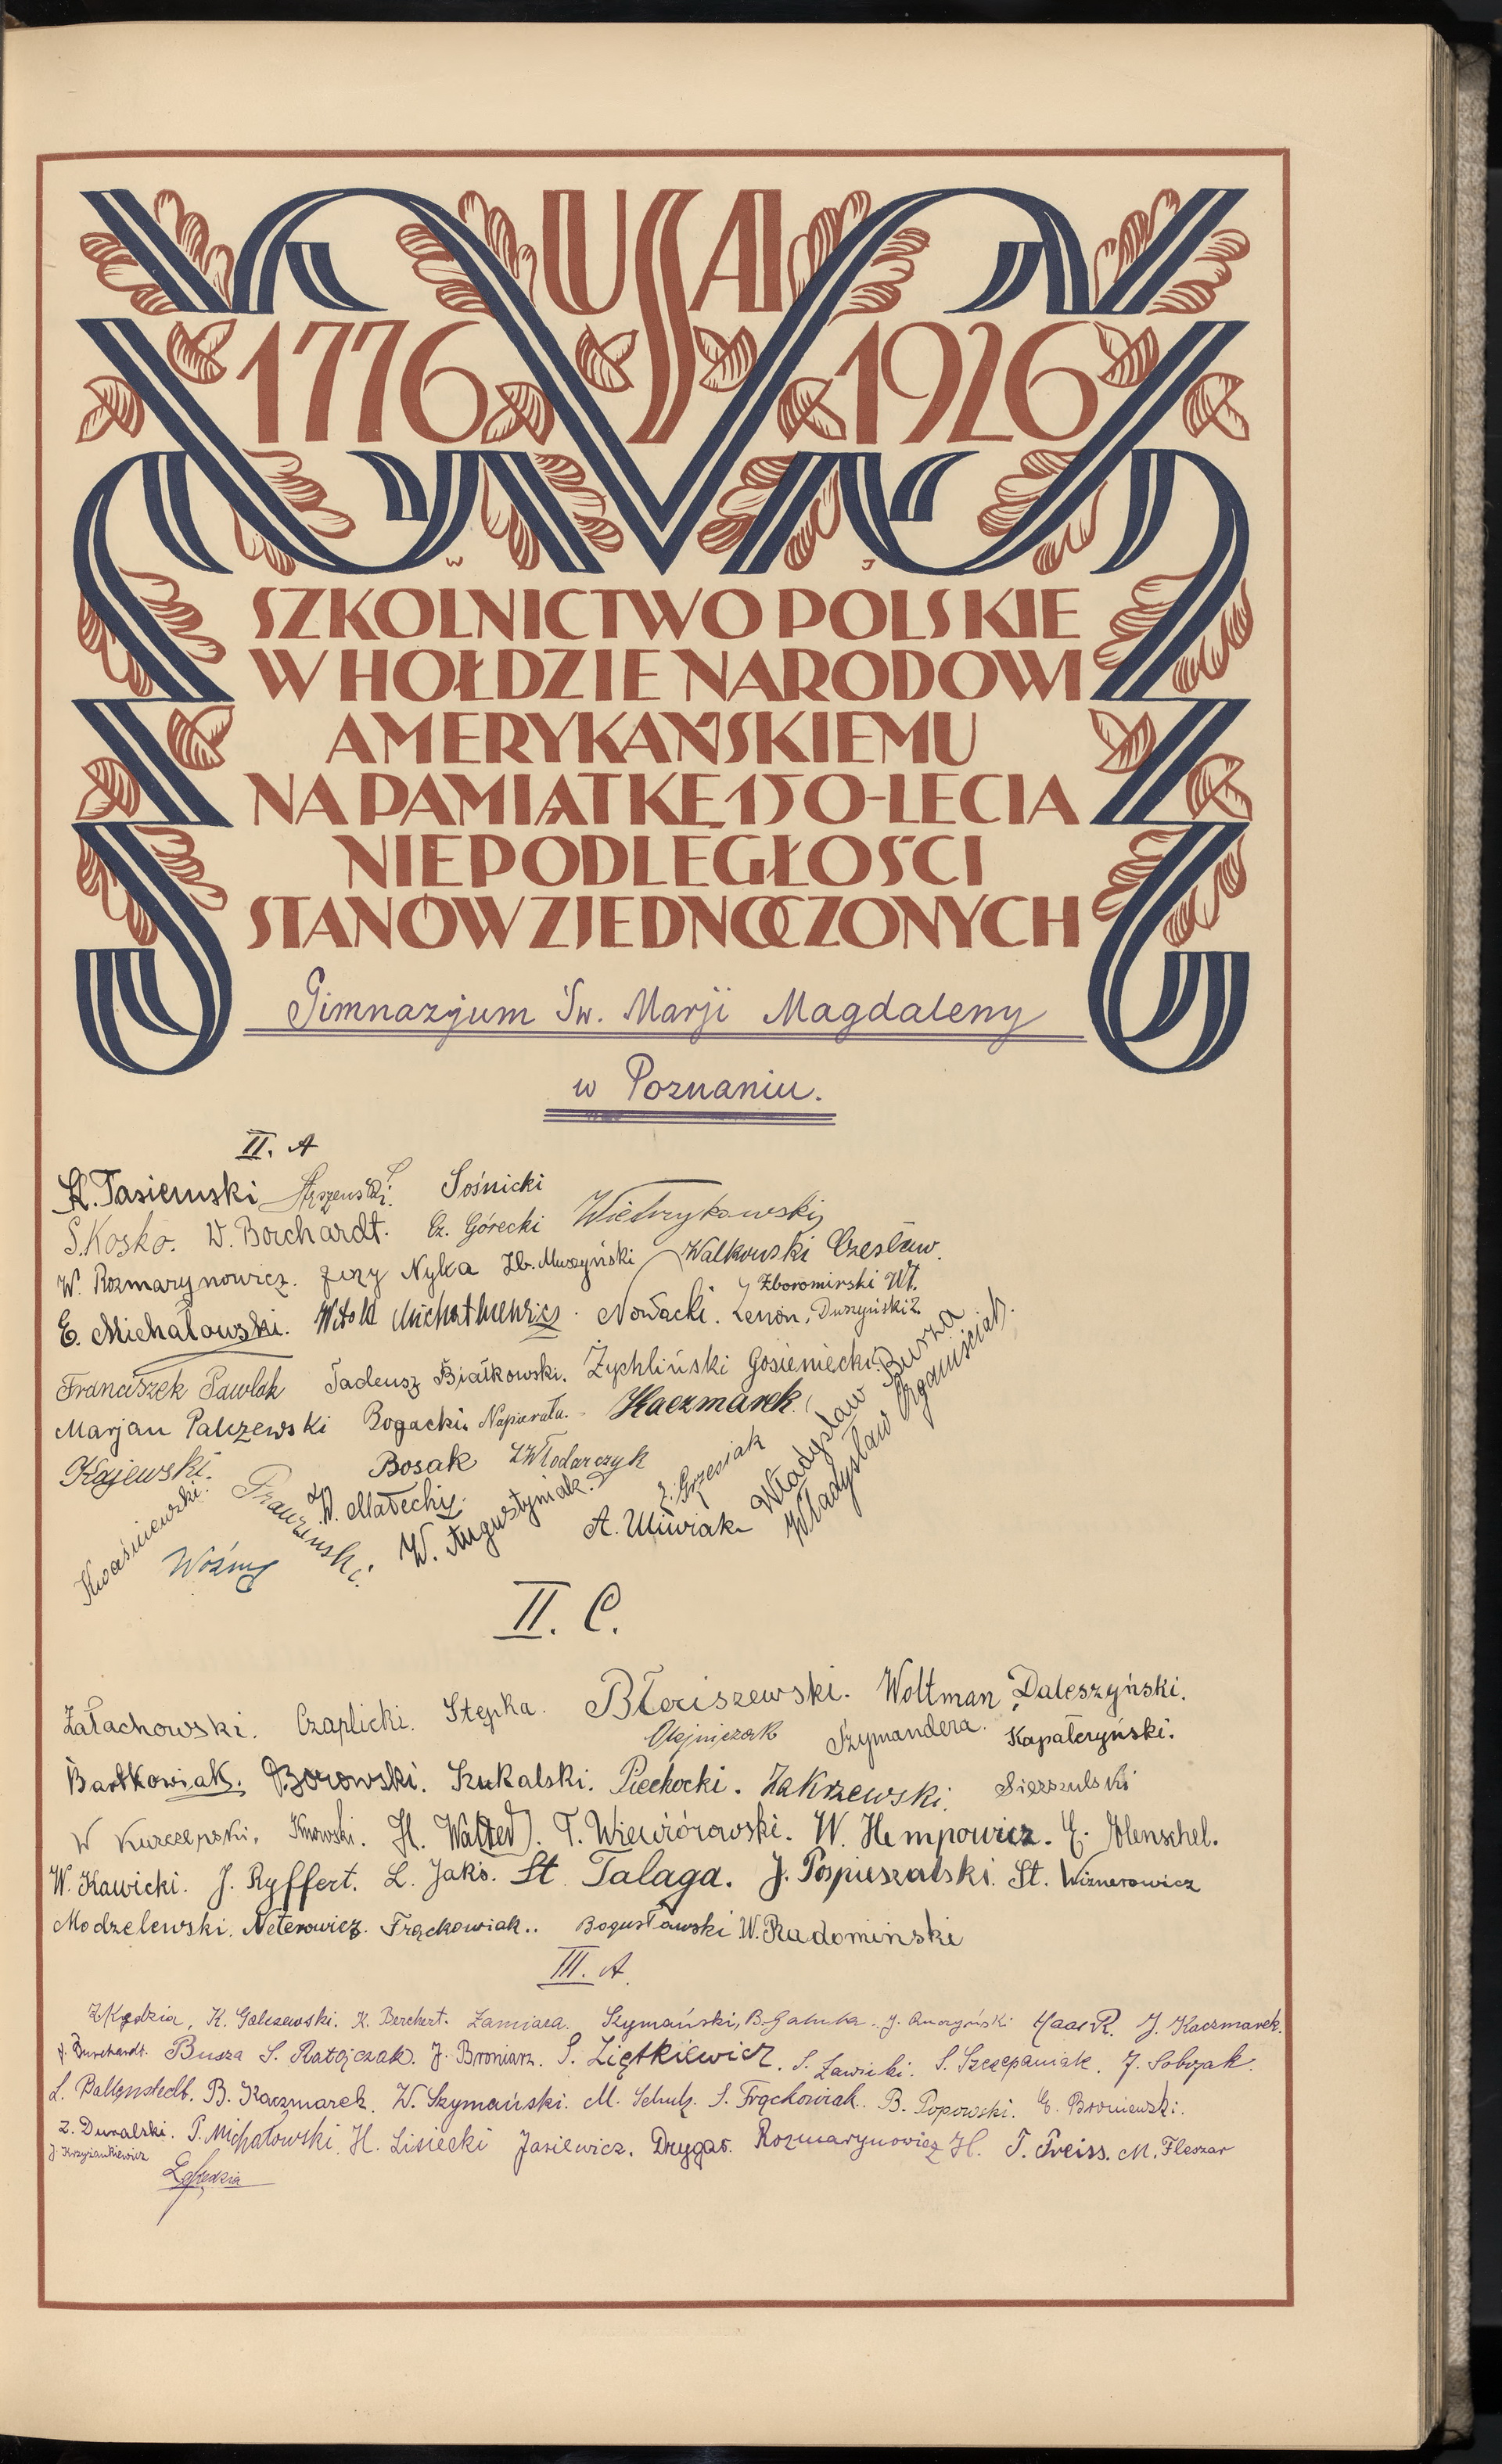 USA
1776 1926
W J
SZKOLNICTWO POLSKIE
W HOŁDZIE NARODOWI
AMERYKAŃSKIEMU
NA PAMIĄTKĘ 150-LECIA
NIEPODLEGŁOŚCI
STANÓW ZJEDNOCZONYCH
Gimnazjum Św. Marji Magdaleny
w Poznaniu.
II. A
Tasiemski Sośnicki
S. Kosko. W. Borchardt. Cz. Górecki Wietrzykowski
W. Rozmarynowicz. Jerzy Nyka Zb. Muszyński Walkowski Czesław.
Zboromirski Wł.
E. Michałowski. Witold Nowacki. Duszyński Z.
Franciszek Pawlak Tadeusz Białkowski. Żychliński Gosieniecki. Władysław Busza
Marjan Palczewski Bogacki. Napierała. Kaczmarek. Władysław Organiściak.
Kajewski. Bosak Włodarczyk
Kwaśniewski. W. Małecki. W. Augustyniak. Grzesiak
Woźny A. Śliwiak
II. C.
Załachowski. Czaplicki. Stępka. Błociszewski. Woltman Daleszyński.
Olejniczak Szymandera. Kapałczyński.
Bartkowiak. Borowski. Szukalski. Piechocki. Zakrzewski. Sierszulski
W H. T. Wiewiórowski. W. Hempowicz. Henschel.
W. Kawicki. J. Ryffert. L. Jakś. St. Talaga. J. Pospieszalski. St. Wiznerowicz
Modzelewski. Neterowicz. Frąckowiak.. Bogusławski W. Radomiński
III. A.
Z Kędzia, K. Galczewski. K. Berchert. Zamiara. Szymański, B. J. Haas R. J. Kaczmarek.
Burchardt. Busza S. Ratajczak. J. Broniarz. S. Ziętkiewicz. S. Zawicki. S. Szczepaniak. J. Sobczak.
L. Ballenstedt. B. Kaczmarek. W. Szymański. M. Schulz. S. Frąckowiak. B. Popowski. E. Broniewski.
Z. Duwalski. T. Michałowski. H. Lisiecki Jasilewicz. Drygas. Rozmarynowicz H. T. Preiss. M. Fleszar
J Krzyżankiewicz